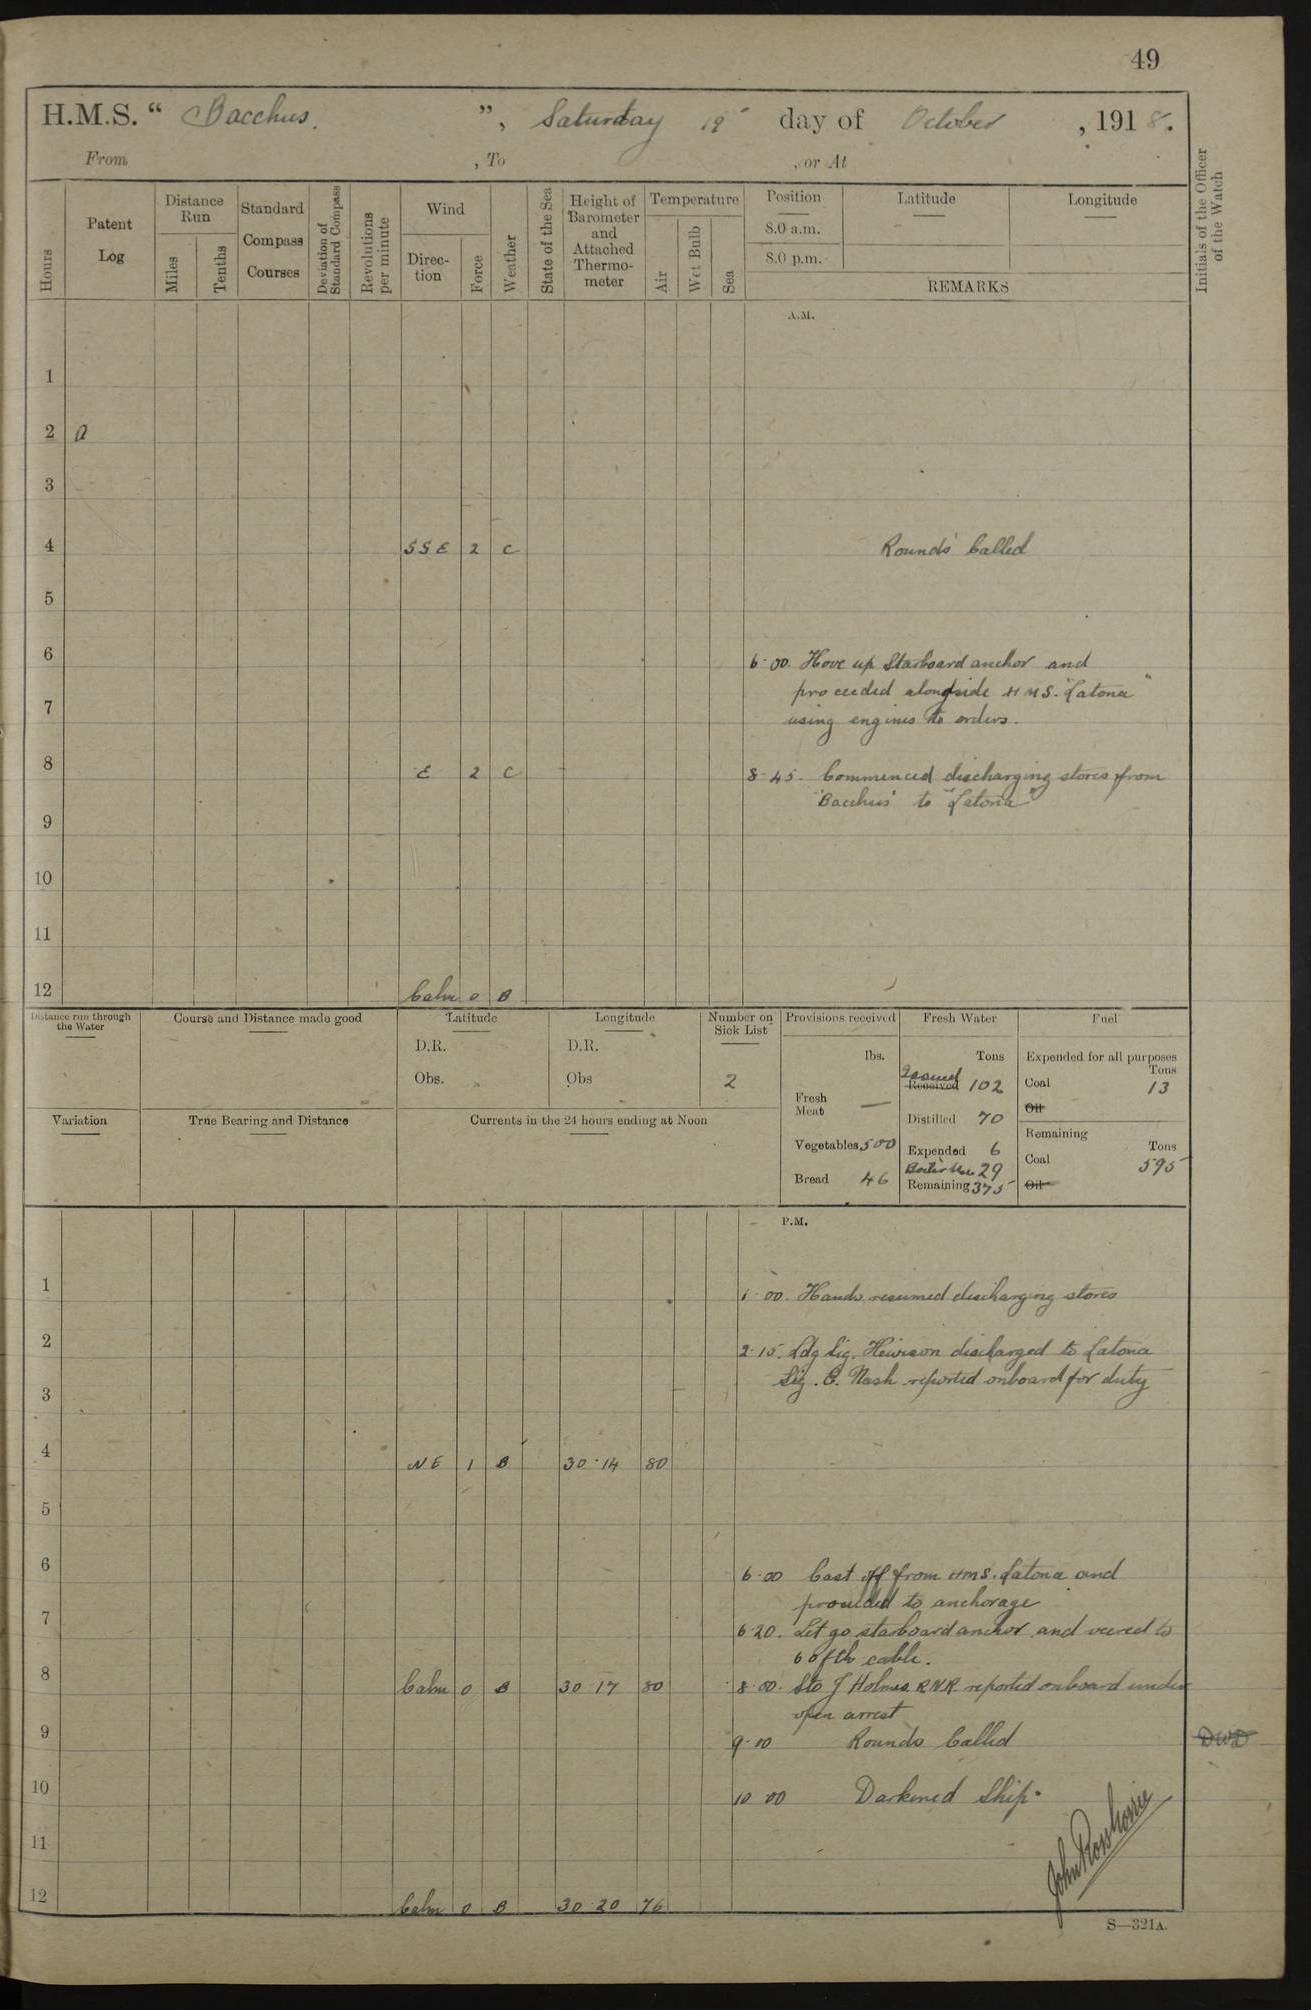 49
H.M.S. “ Bacchus. ”, Saturday 19 day of October , 1918.
From , To , or At
Hours
Patent Log
Distance Run
Miles
Tenths
Standard Compass Courses
Deviation of Standard Compass
Revolutions per minute
Wind
Direc- tion
Force
Weather
State of the Sea
Height of Barometer and Attached Thermo- meter
Temperature
Air
Wet Bulb
Sea
Position
8.0 a.m.
8.0 p.m.
Latitude
Longitude
REMARKS
Initials of the Officer of the Watch
A.M.
1
2 a
3
4 SSE 2 C Rounds Called
5
6 6·00. Hove up Starboard anchor and
proceeded alongside HMS. "Latona"
7 using engines to orders.
8 E 2 C 8-45. Commenced discharging stores from
'Bacchus' to "Latona"
9
10
11
12 Calm 0 B
Distance run through the Water
Course and Distance made good
Latitude
D.R.
Obs.
Longitude
D.R.
Obs
Number on Sick List
2
Provisions received
lbs.
Fresh Meat —
Vegetables 500
Bread 46
Fresh Water
Tons
Issued
Received 102
Distilled 70
Expended 6
Boiler Use 29
Remaining 375
Fuel
Expended for all purposes
Tons
Coal 13
Oil
Remaining
Tons
Coal 595
Oil
Variation
True Bearing and Distance
Currents in the 24 hours ending at Noon
P.M.
1 1·00. Hands resumed discharging stores
2 2·15. Ldg Sig. Hewison discharged to Latona
Sig. C. Nash reported onboard for duty
3
4 NE 1 B 30·14 80
5
6 6·00 Cast off from HMS. Latona and
proceeded to anchorage
7 6·20. Let go starboard anchor and veered to
60 fth cable.
8 Calm 0 B 30 17 80 8·00. Sto J Holmes RNR reported onboard under
open arrest
9 9·00 Rounds Called DWD
10 10 00 Darkened Ship.
11
12 Calm 0 B 30 20 76
S—321A.